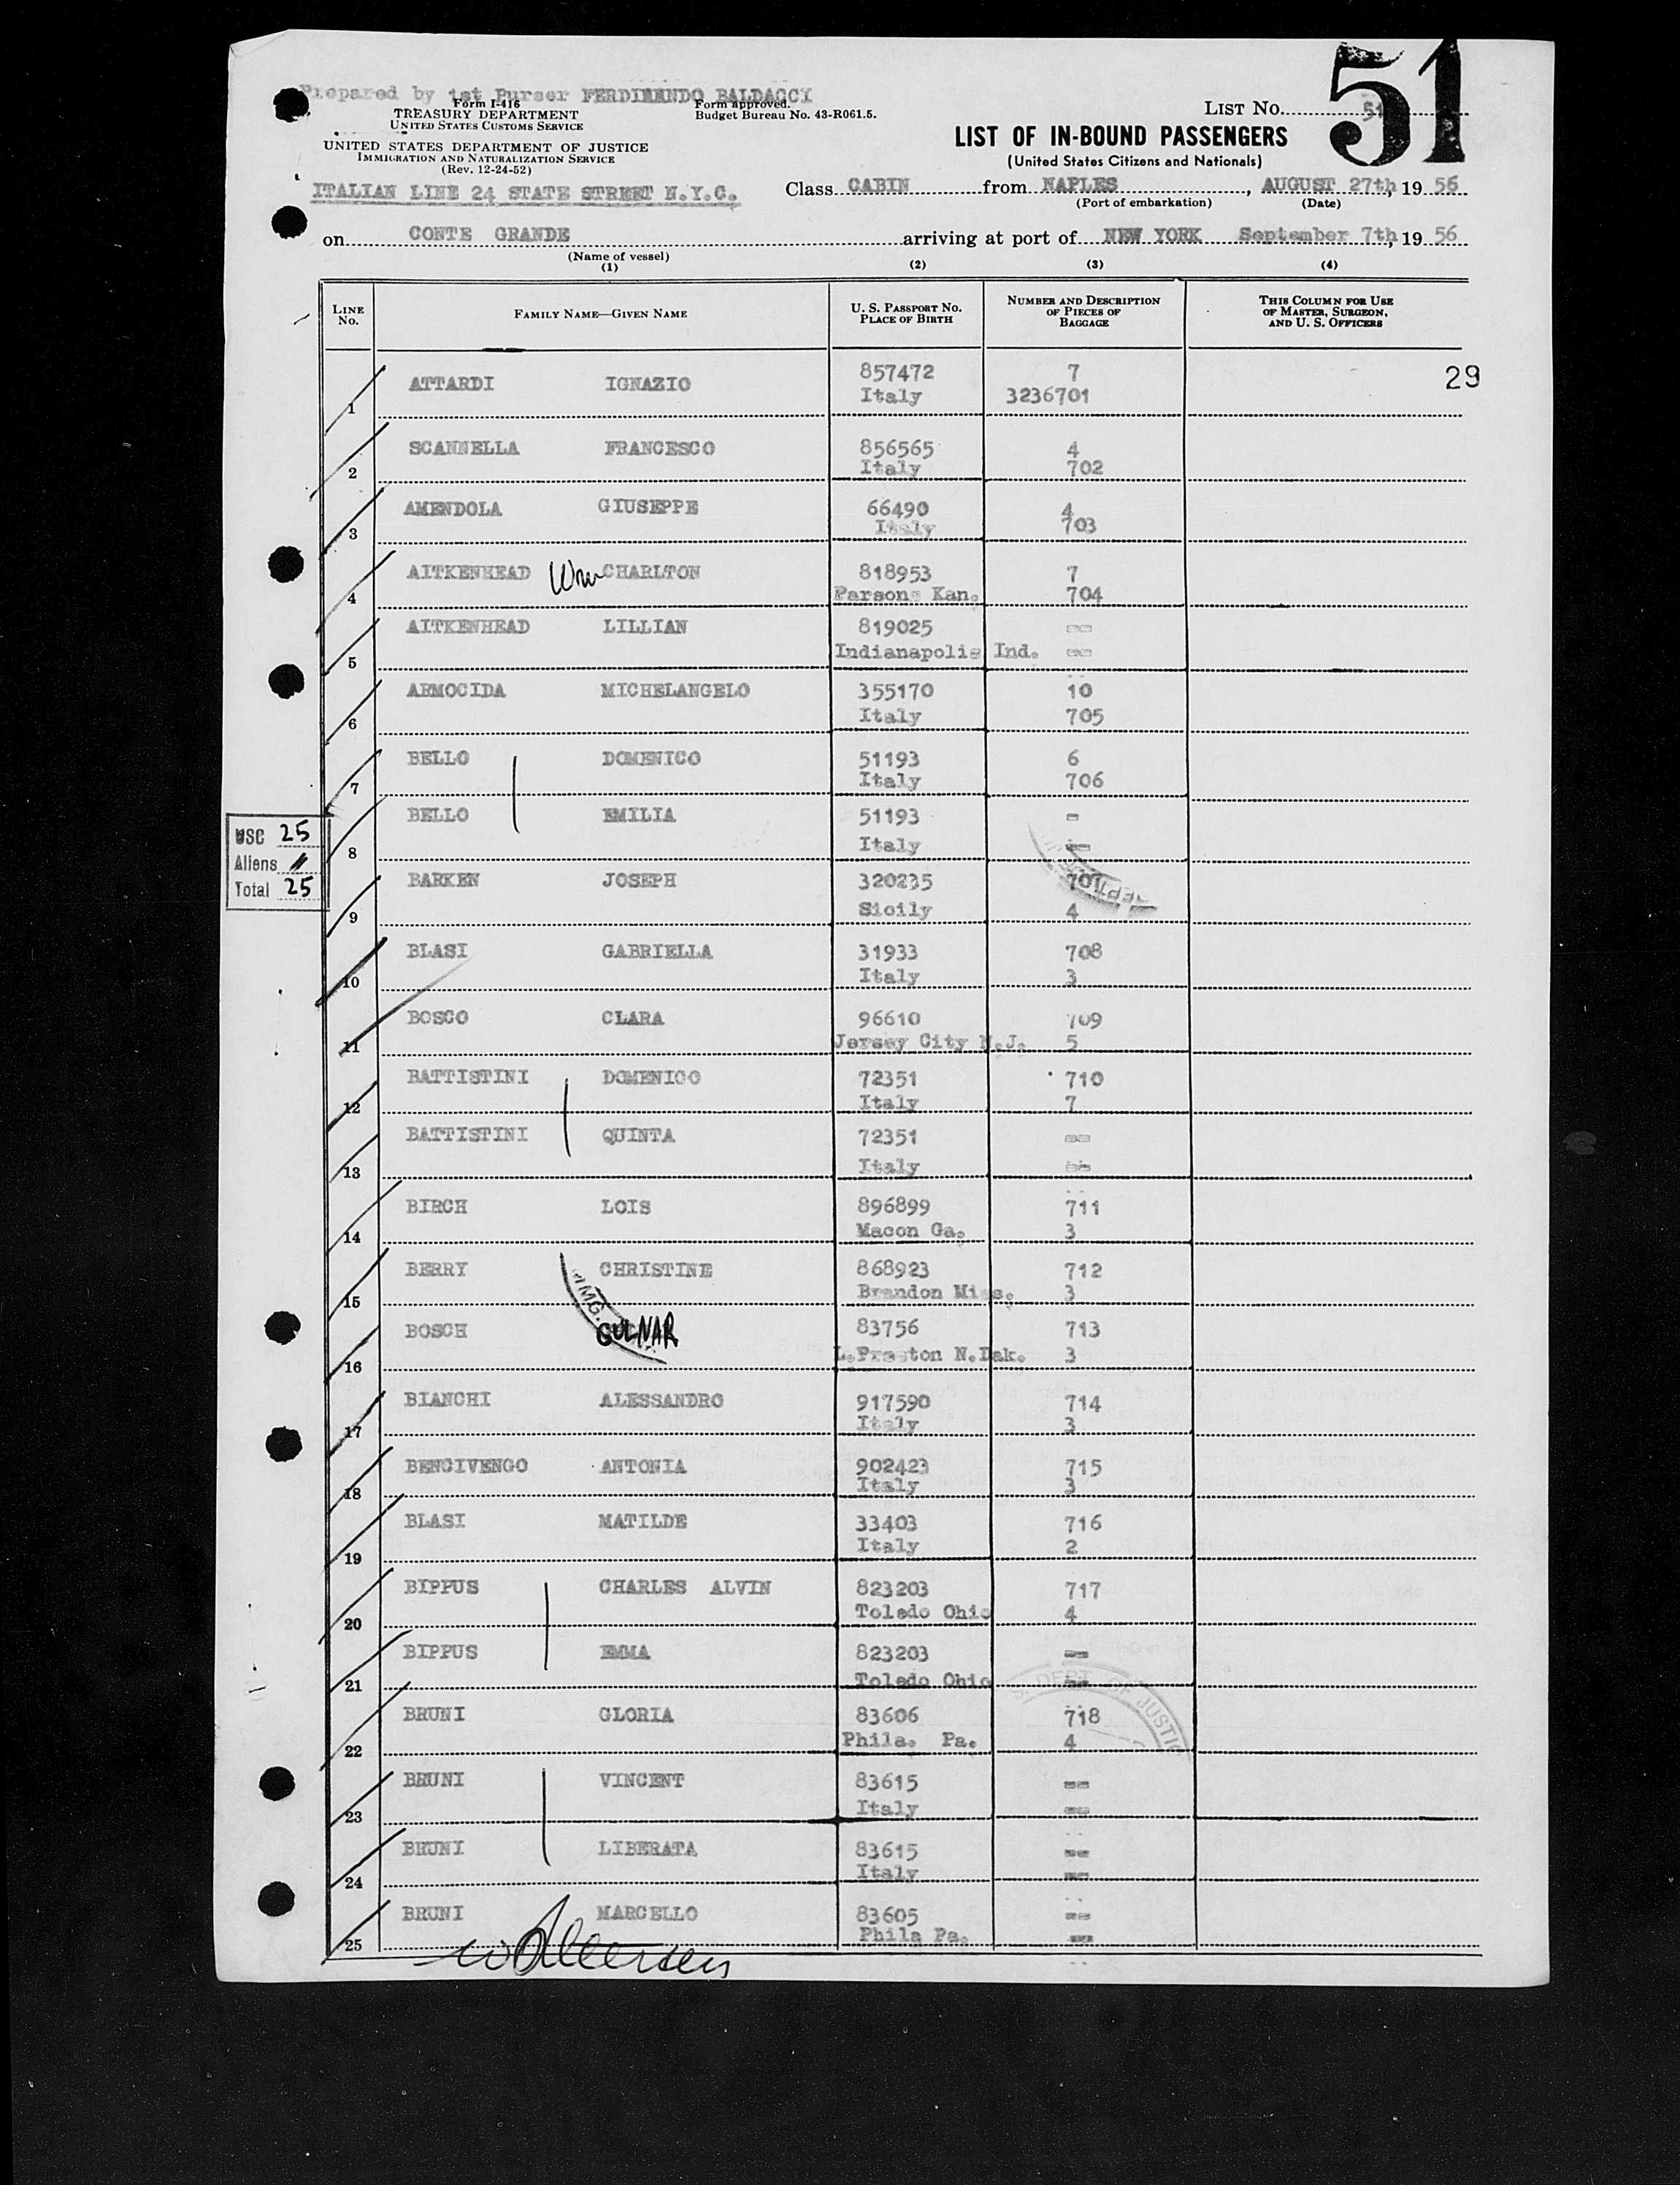 Prepared by 1st Purser FERDINANDO BALDACCI
Form I-416
TREASURY DEPARTMENT
UNITED STATES CUSTOMS SERVICE
Form approved.
Budget Bureau No. 43-R061.5.
LIST NO. 51
51
UNITED STATES DEPARTMENT OF JUSTICE
IMMIGRATION AND NATURALIZATION SERVICE
(Rev. 12-24-52)
LIST OF IN-BOUND PASSENGERS
(United States Citizens and Nationals)
ITALIAN LINE 24 STATE STREET N.Y.C.
Class CABIN from NAPLES, AUGUST 27th, 19 56
(Port of embarkation) (Date)
on CONTE GRANDE arriving at port of NEW YORK September 7th, 19 56
(Name of vessel)
(1) (2) (3) (4)
LINE No.
FAMILY NAME—GIVEN NAME
U. S. PASSPORT NO.
PLACE OF BIRTH
NUMBER AND DESCRIPTION
OF PIECES OF
BAGGAGE
THIS COLUMN FOR USE
OF MASTER, SURGEON,
AND U. S. OFFICERS
29
ATTARDI IGNAZIO 857472 7
1 Italy 3236701
SCANNELLA FRANCESCO 856565 4
2 Italy 702
AMENDOLA GIUSEPPE 66490 4
3 Italy 703
AITKENHEAD Wm CHARLTON 818953 7
4 Parsons Kan. 704
AITKENHEAD LILLIAN 819025 --
5 Indianapolis Ind. --
ARMOCIDA MICHELANGELO 355170 10
6 Italy 705
BELLO DOMENICO 51193 6
7 Italy 706
BELLO EMILIA 51193 -
8 Italy --
USC 25
Aliens //
Total 25
BARKEN JOSEPH 320235 707
9 Sicily 4
BLASI GABRIELLA 31933 708
10 Italy 3
BOSCO CLARA 96610 709
11 Jersey City N.J. 5
BATTISTINI DOMENICO 72351 710
12 Italy 7
BATTISTINI QUINTA 72351 --
13 Italy --
BIRCH LOIS 896899 711
14 Macon Ga. 3
BERRY CHRISTINE 868923 712
15 Brandon Miss. 3
IMMG.
BOSCH GULNAR 83756 713
16 L.Preston N.Dak. 3
BIANCHI ALESSANDRO 917590 714
17 Italy 3
BENCIVENGO ANTONIA 902423 715
18 Italy 3
BLASI MATILDE 33403 716
19 Italy 2
BIPPUS CHARLES ALVIN 823203 717
20 Toledo Ohio 4
BIPPUS EMMA 823203 --
21 Toledo Ohio --
DEPT. OF JUSTIC
BRUNI GLORIA 83606 718
22 Phila. Pa. 4
BRUNI VINCENT 83615 --
23 Italy --
BRUNI LIBERATA 83615 --
24 Italy --
BRUNI MARCELLO 83605 --
25 Phila Pa. --